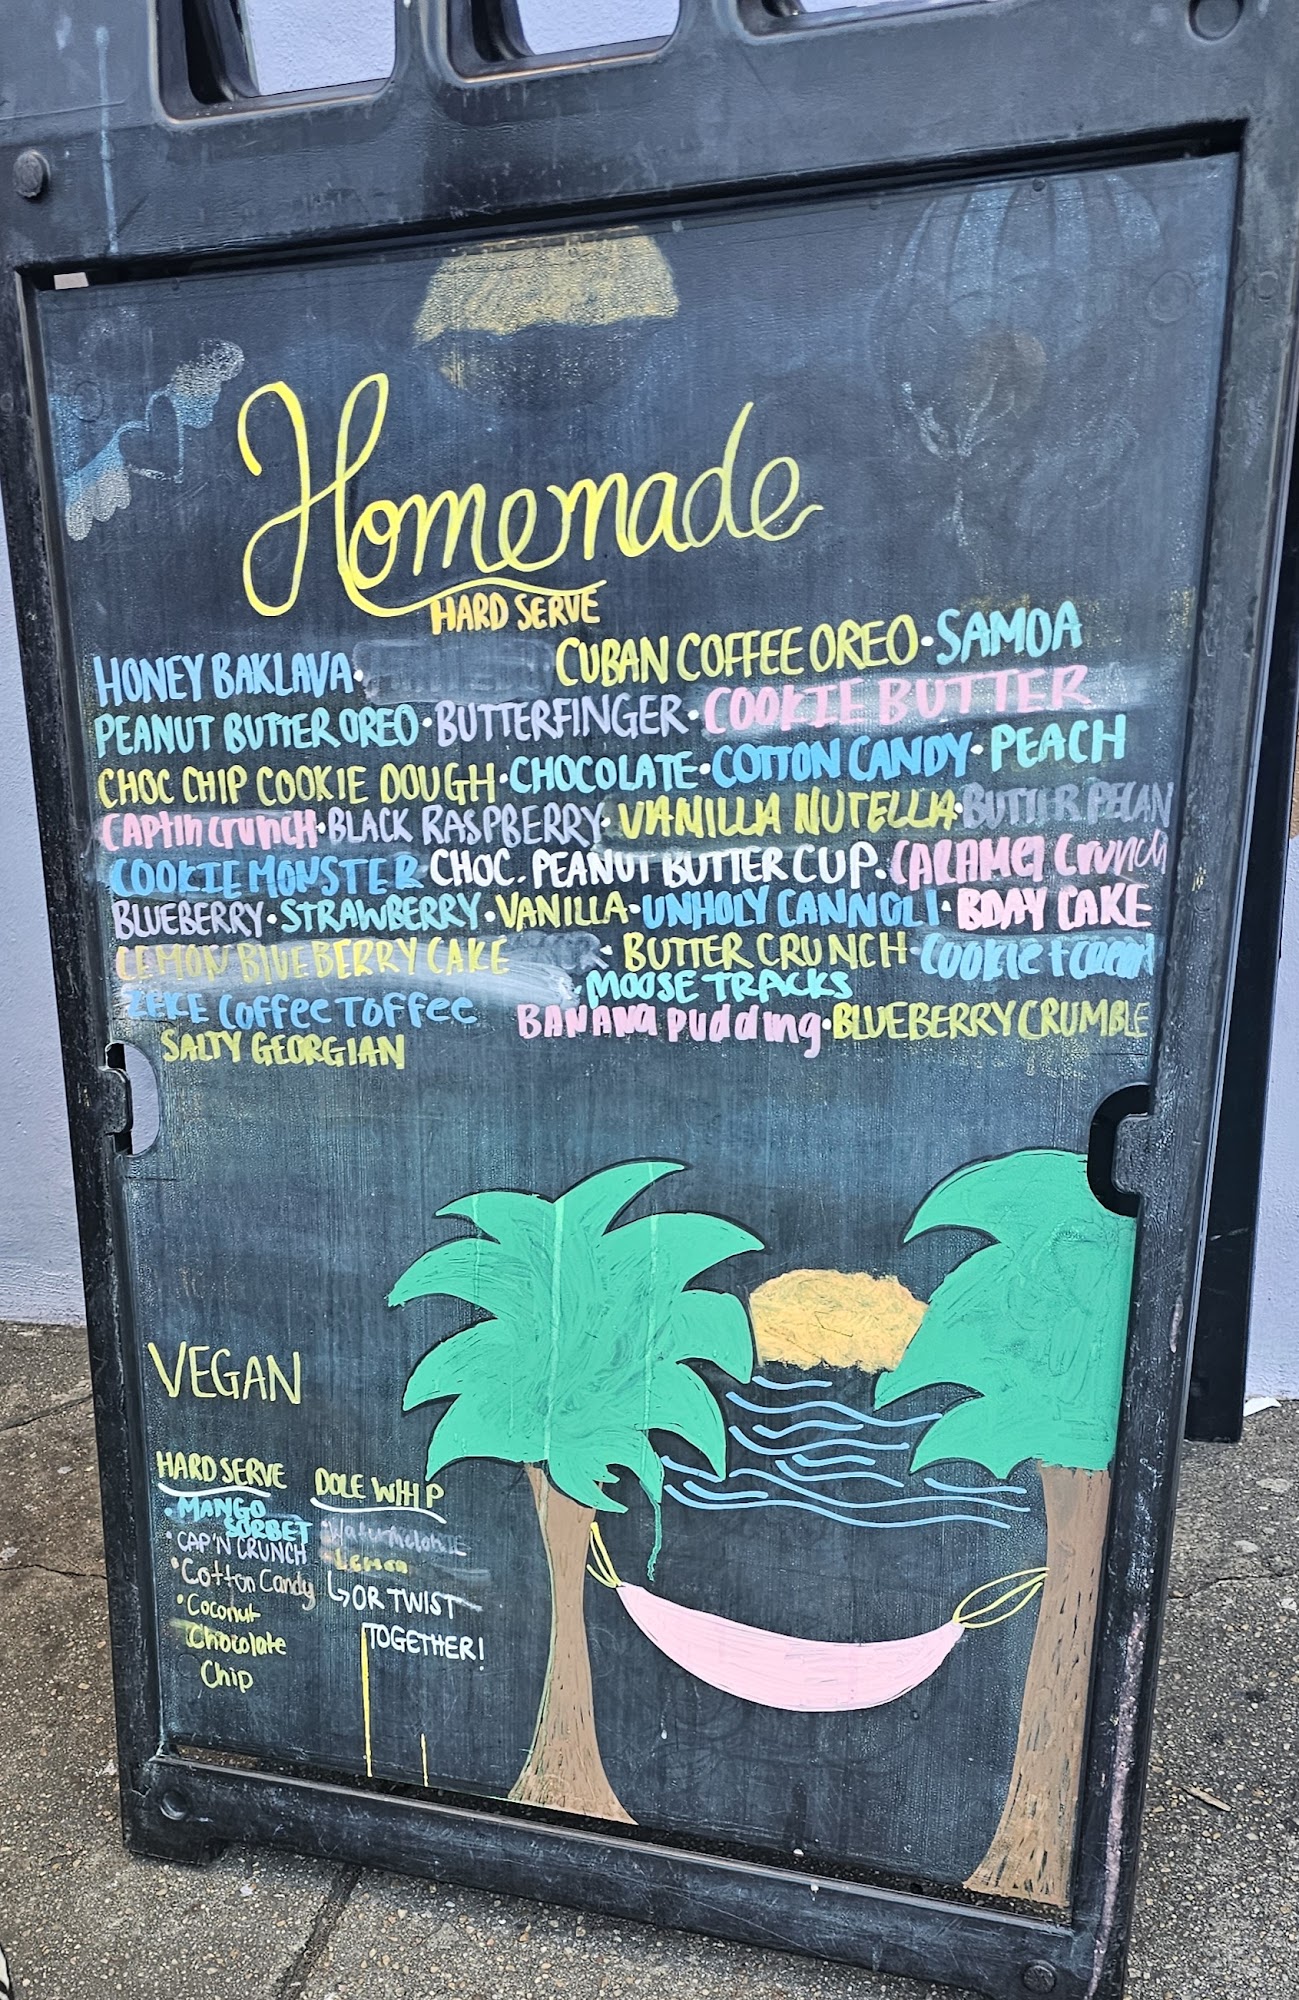 Homemade
HARD SERVE
HONEY BAKLAVA· CUBAN COFFEE OREO·SAMOA
PEANUT BUTTER OREO·BUTTERFINGER·COOKIE BUTTER
CHOC CHIP COOKIE DOUGH·CHOCOLATE·COTTON CANDY·PEACH
CAPTIN CRUNCH·BLACK RASPBERRY·VANILLA NUTELLA·BUTTER PECAN
COOKIE MONSTER·CHOC. PEANUT BUTTER CUP.CARAMEl Crunch
BLUEBERRY·STRAWBERRY·VANILLA·UNHOLY CANNOLI·BDAY CAKE
LEMON BLUEBERRY CAKE ·BUTTER CRUNCH·Cookie + Cream
·MOOSE TRACKS
ZEKE Coffee Toffee BANANA Pudding·BLUEBERRY CRUMBLE
SALTY GEORGIAN
VEGAN
HARD SERVE
·MANGO SORBET
·CAP'N CRUNCH
·Cotton Candy
·Coconut
Chocolate
Chip
DOLE WHIP
·Watermelon
·Lemon
↳OR TWIST
TOGETHER!